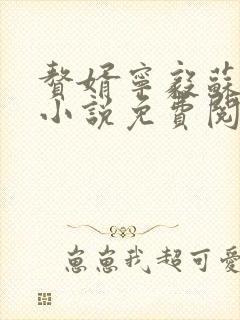 贅婿寧毅蘇
小說免費閱
崽崽我超可愛